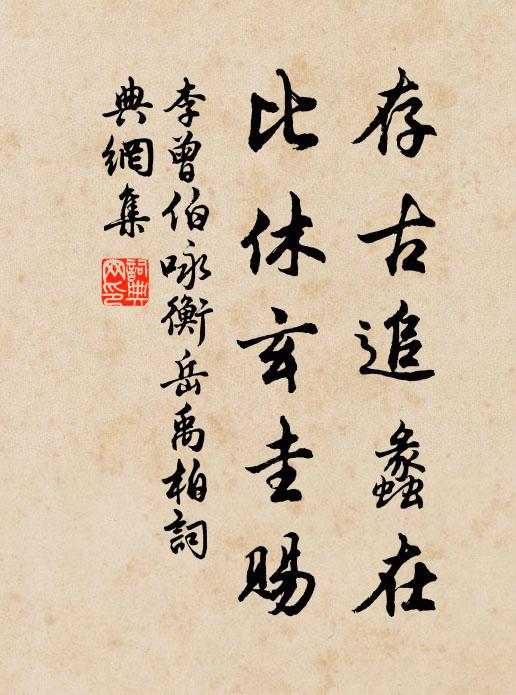 存古追蠡在
比休玄圭賜
李曾伯咏衡岳禹柏詞
典網集
詞典網印